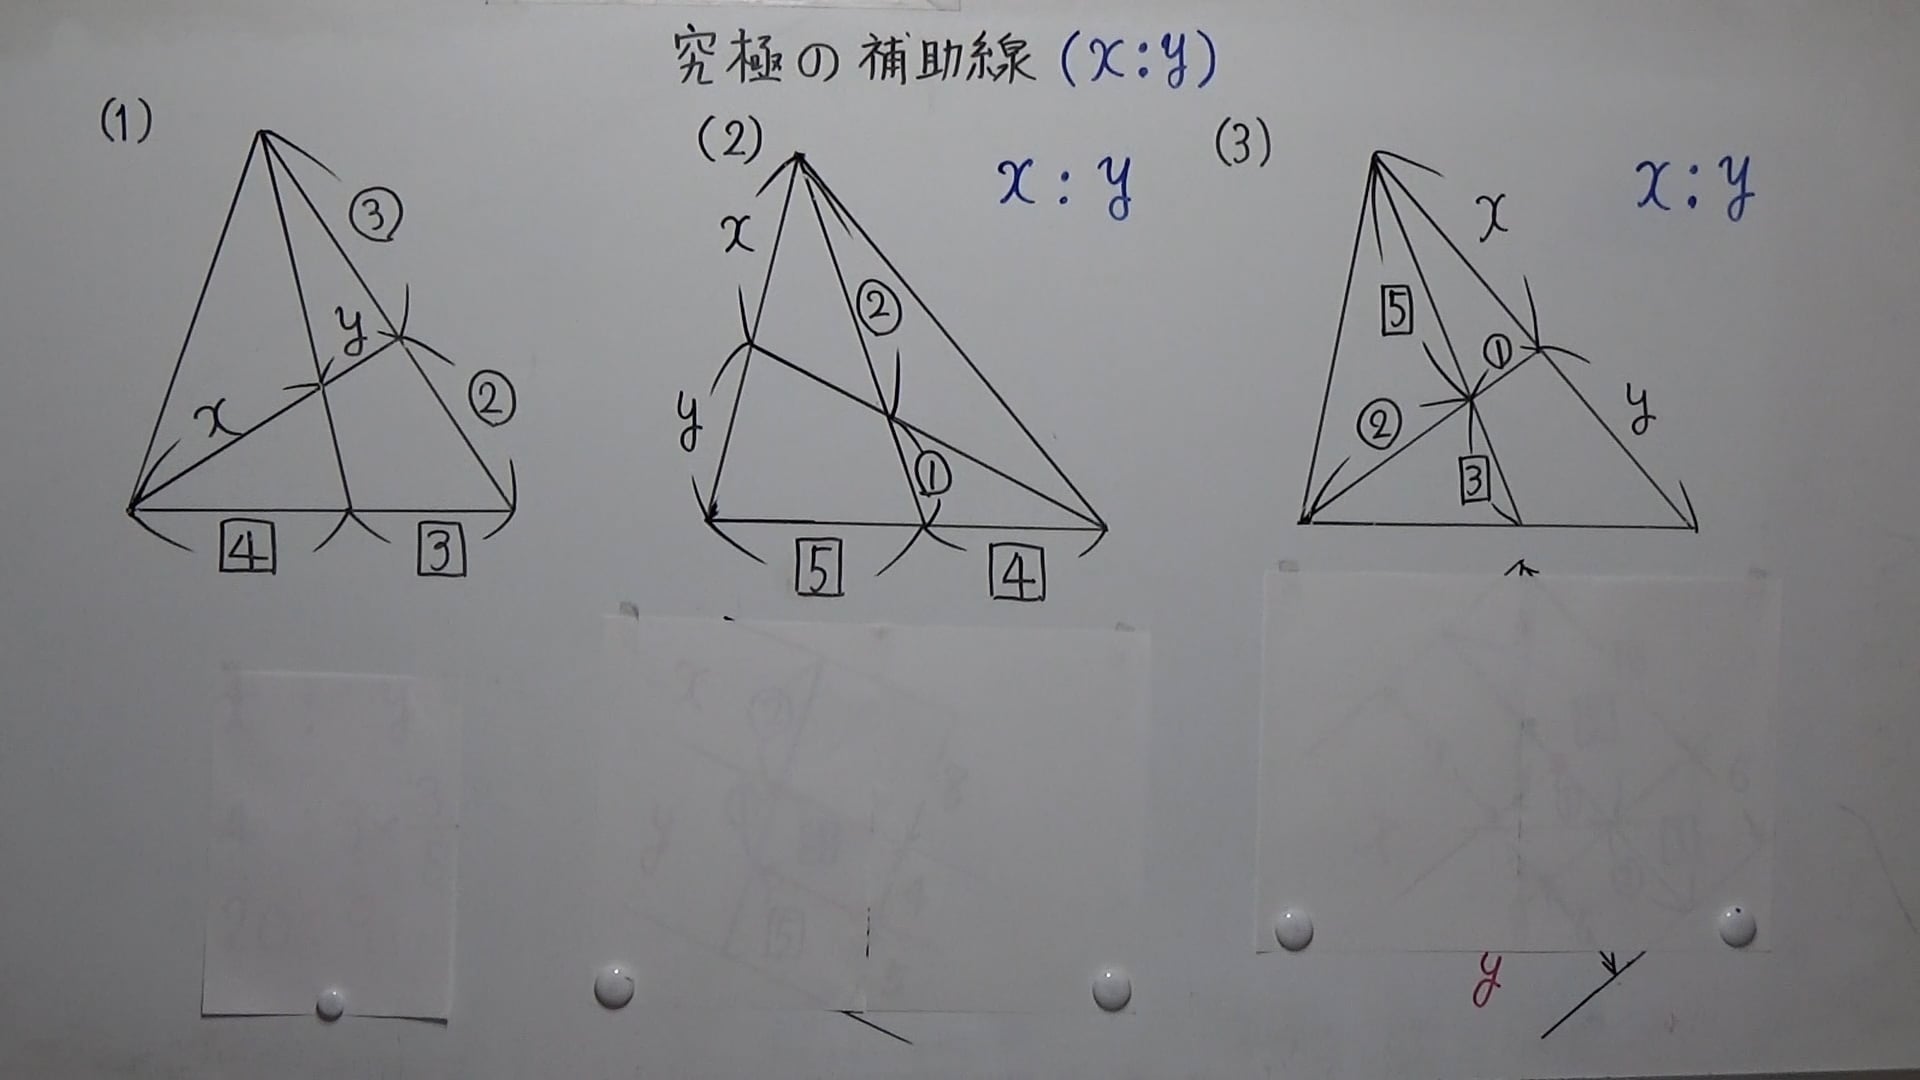 究極の補助線 (x:y)
(1)
③
y
x
②
4
3
(2)
x : y
x
②
y
①
5
4
(3)
x : y
x
5
①
②
y
3
y